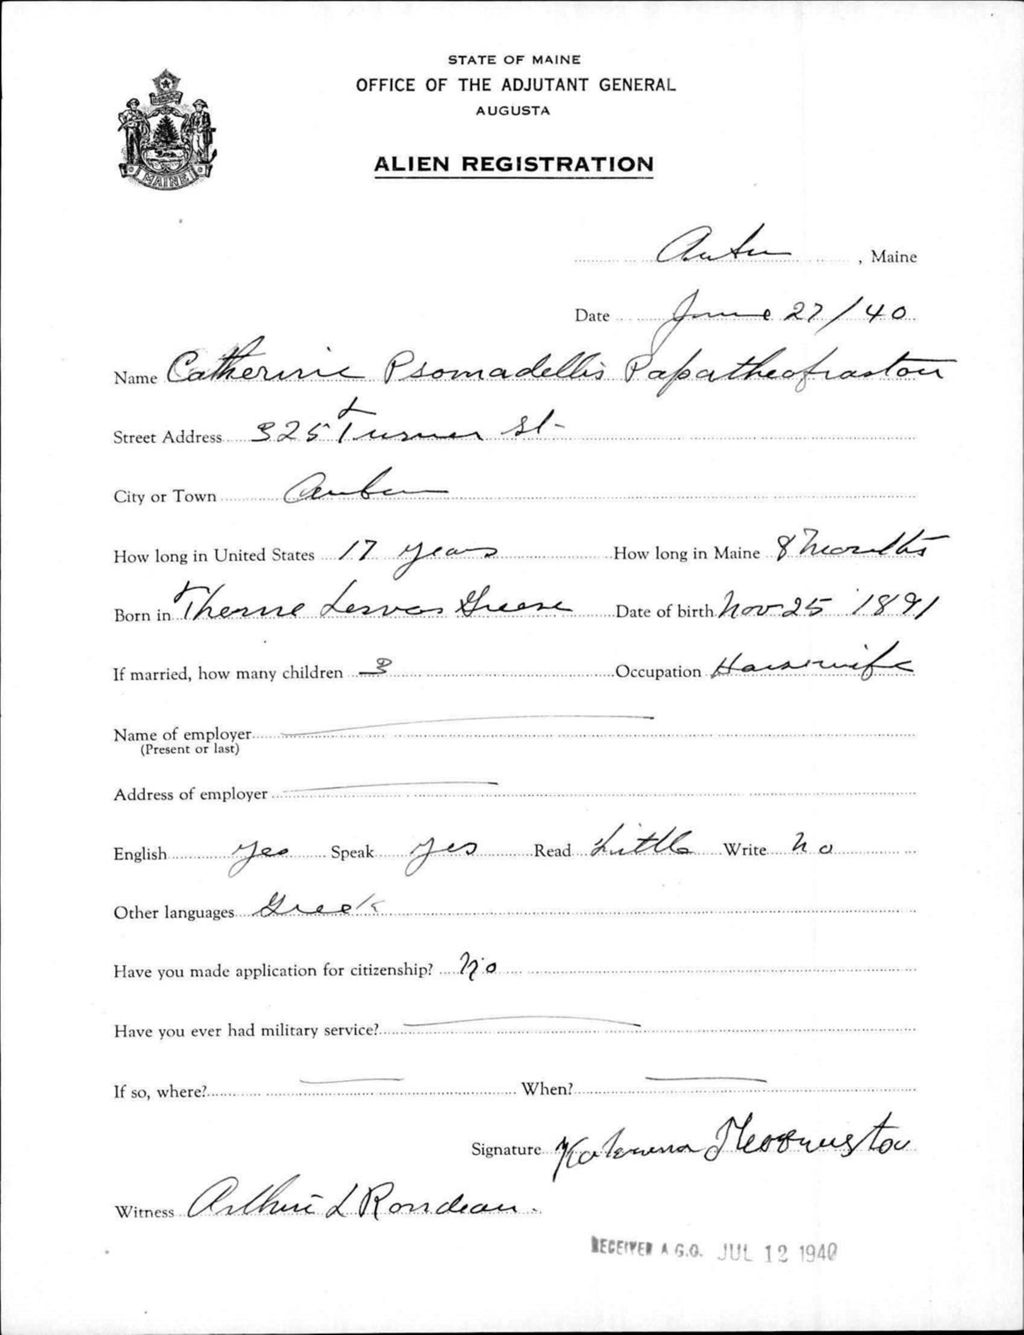 STATE OF MAINE
OFFICE OF THE ADJUTANT GENERAL
AUGUSTA
MAINE
ALIEN REGISTRATION
, Maine
Date June 27/40
Name Catherine Psomadellis Papatheofraston
Street Address 325 Turner St-
City or Town
How long in United States 17 years How long in Maine 8 Months
Born in Therme Greese Date of birth Nov 25 1891
If married, how many children 3 Occupation Housewife
Name of employer
(Present or last)
Address of employer
English Yes Speak Yes Read Little Write No
Other languages Greek
Have you made application for citizenship? No
Have you ever had military service?
If so, where? When?
Signature
Witness Arthur L Rondeau.
RECEIVED A.G.O. JUL 12 1940